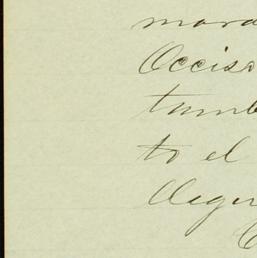 mora
Occis
tumb
to el
llegu